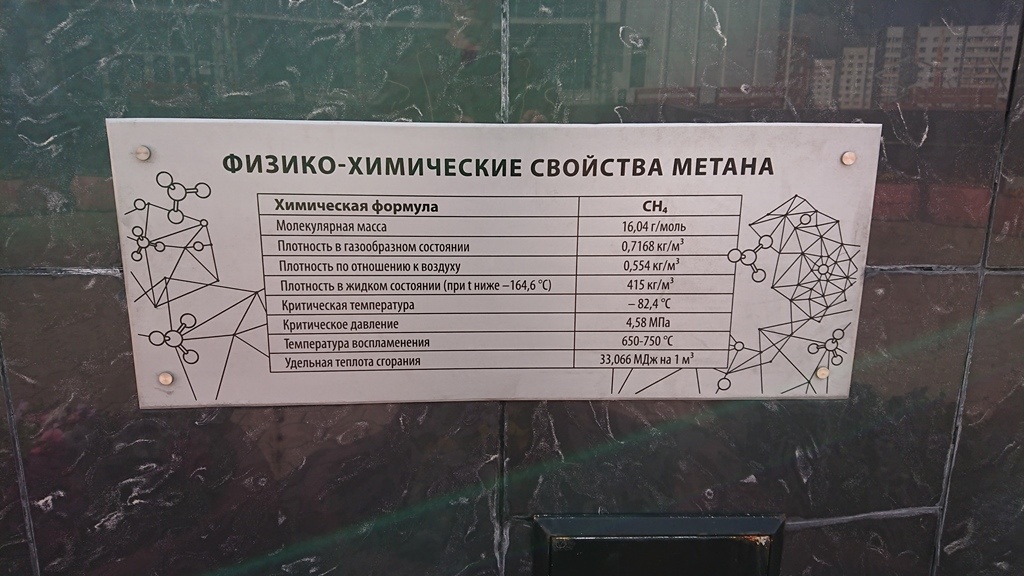 ФИЗИКО-ХИМИЧЕСКИЕ СВОЙСТВА МЕТАНА
Химическая формула CH₄
Молекулярная масса 16,04 г/моль
Плотность в газообразном состоянии 0,7168 кг/м³
Плотность по отношению к воздуху 0,554 кг/м³
Плотность в жидком состоянии (при t ниже –164,6 °C) 415 кг/м³
Критическая температура – 82,4 °C
Критическое давление 4,58 МПа
Температура воспламенения 650-750 °C
Удельная теплота сгорания 33,066 МДж на 1 м³